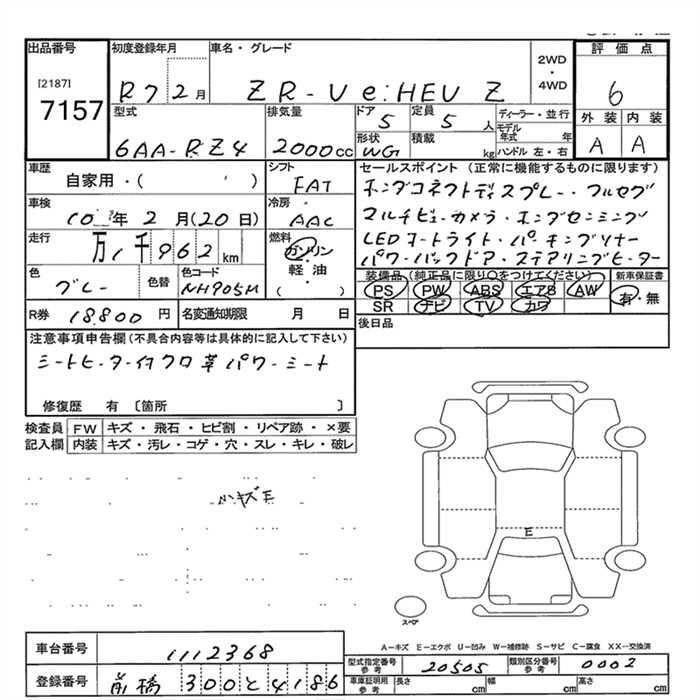 出品番号
[2187]
7157
初度登録年月
R7 2月
車名・グレード
ZR-Ve:HEV Z
2WD
・
4WD
評価点
6
外装 内装
A A
型式
6AA-RZ4
排気量
2000cc
ドア
5
定員
5人
形状
WG
積載
kg
ディーラー・並行
モデル年式 年
ハンドル 左・右
車歴
自家用・( )
シフト
FAT
車検
10年2月(20日)
冷房
AAC
走行
万1千962km
燃料
ガソリン
・
軽・油
( )
色
グレー
色替
色コード
NH905M
R券
18,800円
名変通知期限 月 日
セールスポイント (正常に機能するものに限ります)
ホンダコネクトディスプレー・フルセグ
マルチビューカメラ・ホンダセンシング
LEDオートライト・パーキングソナー
パワーバックドア・ステアリングヒーター
装備品 (純正品に限り○をつけてください)
PS PW ABS エアB AW
SR ナビ TV カワ
新車保証書
有・無
後日品
注意事項申告欄(不具合内容等は具体的に記入して下さい)
シートヒーター付クロ革パワーシート
修復歴 有 〔箇所 〕
検査員記入欄
FW キズ・飛石・ヒビ割・リペア跡・×要
内装 キズ・汚レ・コゲ・穴・スレ・キレ・破レ
小キズE
E
スペア
車台番号
1112368
登録番号
前橋 300と4186
A―キズ E―エクボ U―凹み W―補修跡 S―サビ C―腐食 XX―交換済
型式指定番号
参考
20505
類別区分番号
参考
0002
車庫証明用
参考
長さ cm 幅 cm 高さ cm